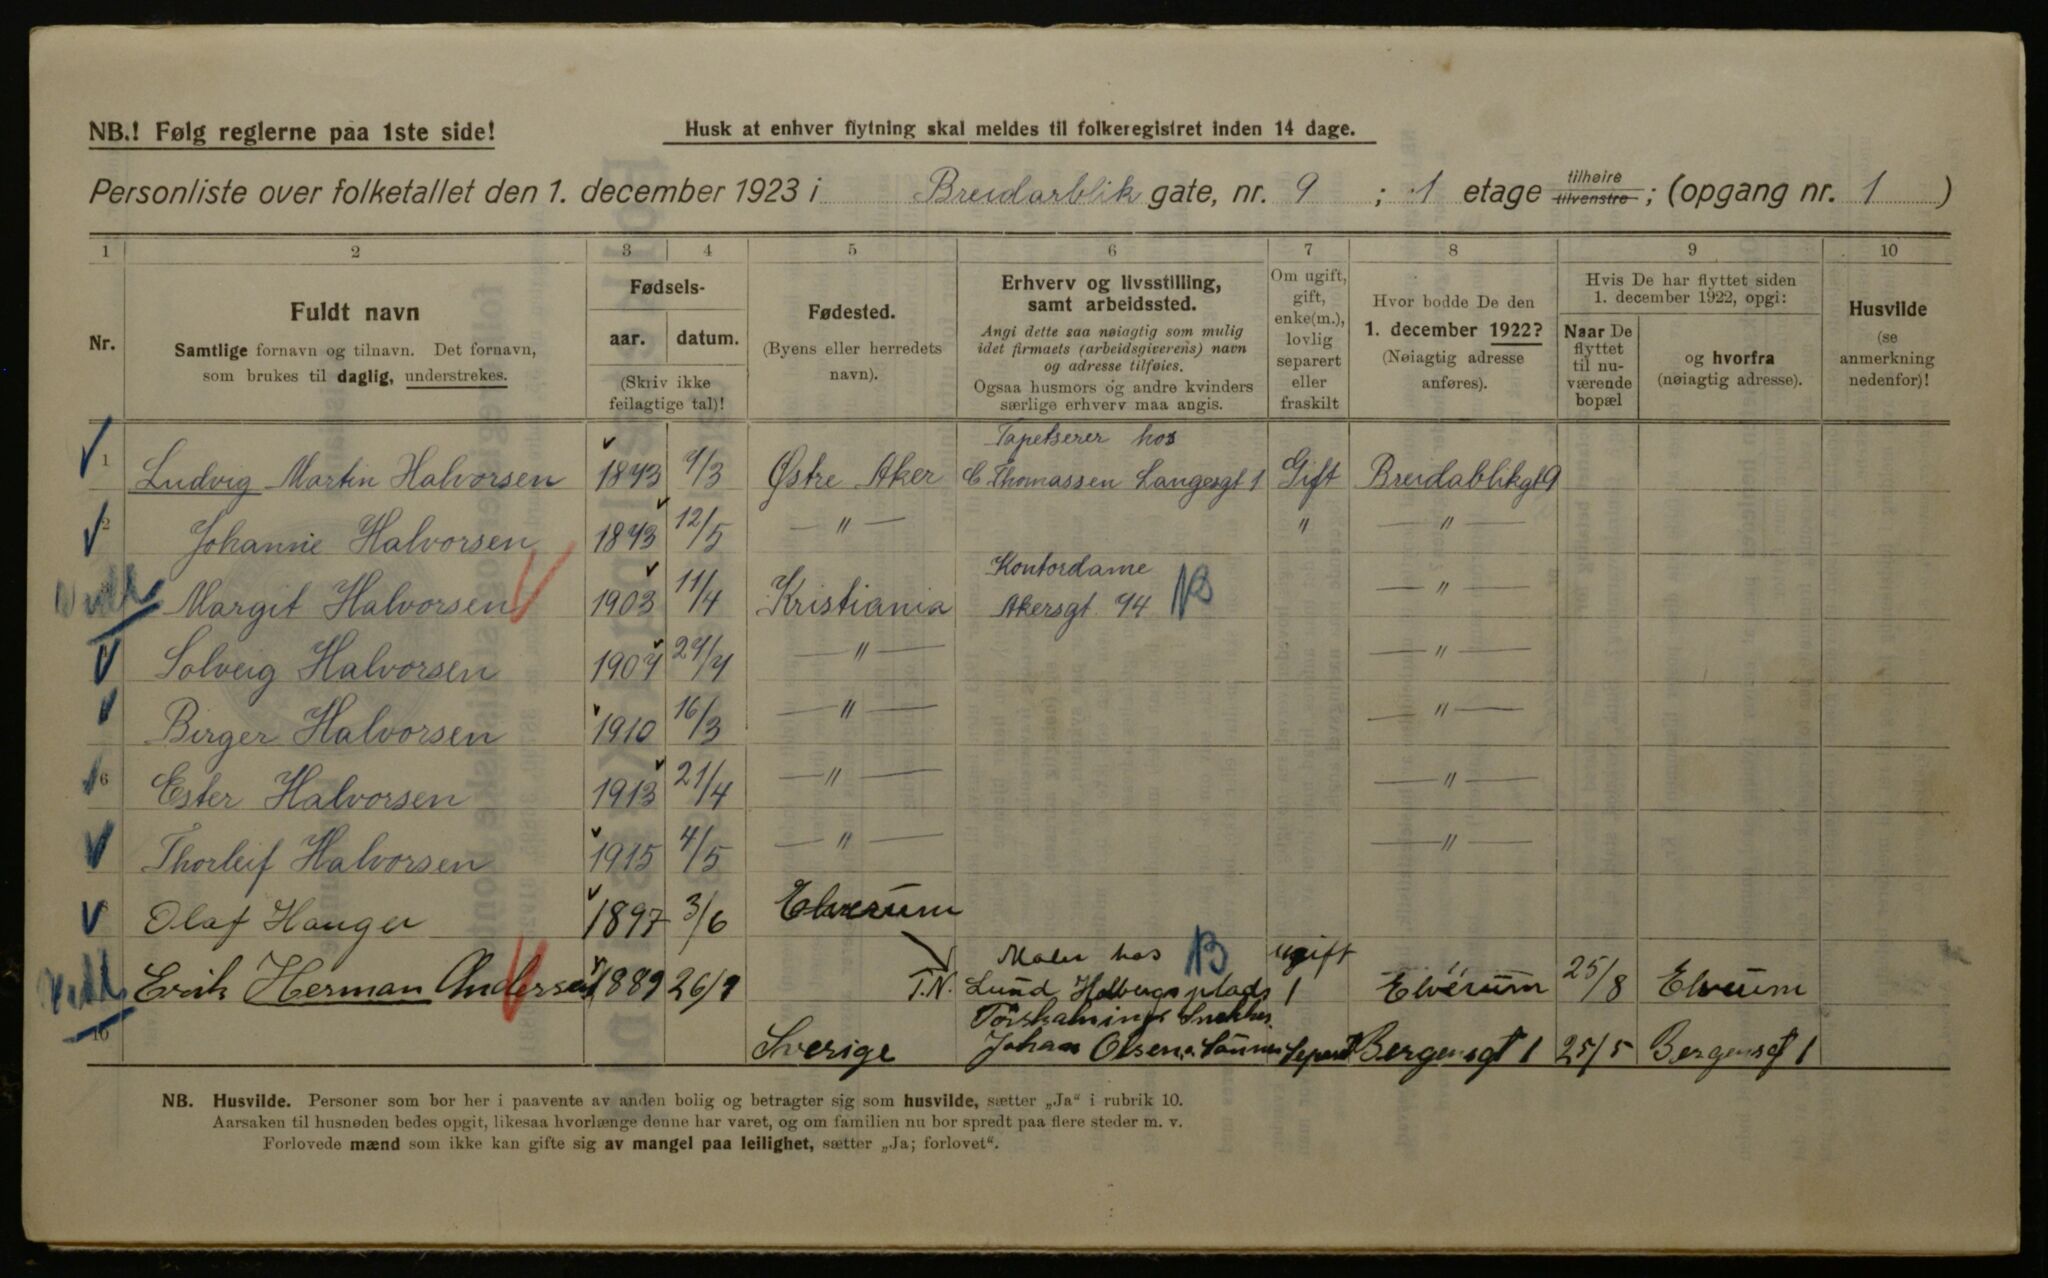 NB.! Følg reglerne paa 1ste side!
Husk at enhver flytning skal meldes til folkeregistret inden 14 dage.
Personliste over folketallet den 1. december 1923 i Breidarblik gate, nr. 9 ; 1 etage tilhøire tilvenstre ; (opgang nr. 1 )
1 2 3 4 5 6 7 8 9 10
Nr.
Fuldt navn
Samtlige fornavn og tilnavn. Det fornavn,
som brukes til daglig, understrekes.
Fødsels-
aar. datum.
(Skriv ikke
feilagtige tal)!
Fødested.
(Byens eller herredets
navn).
Erhverv og livsstilling,
samt arbeidssted.
Angi dette saa nøiagtig som mulig
idet firmaets (arbeidsgiverens) navn
og adresse tilføies.
Ogsaa husmors og andre kvinders
særlige erhverv maa angis.
Om ugift,
gift,
enke(m.),
lovlig
separert
eller
fraskilt
Hvor bodde De den
1. december 1922?
(Nøiagtig adresse
anføres).
Hvis De har flyttet siden
1. december 1922, opgi:
Naar De
flyttet
til nu-
værende
bopæl
og hvorfra
(nøiagtig adresse).
Husvilde
(se
anmerkning
nedenfor)!
Tapetserer hos
1 Ludvig Martin Halvorsen 1873 7/3 Østre Aker C Thomassen Langesgt 1 Gift Breidablikgt 9
2 Johanne Halvorsen 1873 12/5 — " — " — " —
Kontordame
Margit Halvorsen 1903 11/4 Kristiania Akersgt. 74 NB — " —
Solveig Halvorsen 1907 27/7 — " — — " —
Birger Halvorsen 1910 16/3 — " — — " —
6 Ester Halvorsen 1913 21/4 — " — — " —
Thorleif Halvorsen 1915 4/5 — " — — " —
Olaf Hauger 1897 3/6 Elverum
Maler hos ugift
Erik Herman Andersen 1889 26/9 T.N. Lund Holbergsplads 1 Elverum 25/8 Elverum
10 Sverige Johan Olsen Bergensgt 1 25/5 Bergensgt 1
NB. Husvilde. Personer som bor her i paavente av anden bolig og betragter sig som husvilde, sætter „Ja“ i rubrik 10.
Aarsaken til husnøden bedes opgit, likesaa hvorlænge denne har varet, og om familien nu bor spredt paa flere steder m. v.
Forlovede mænd som ikke kan gifte sig av mangel paa leilighet, sætter „Ja; forlovet“.